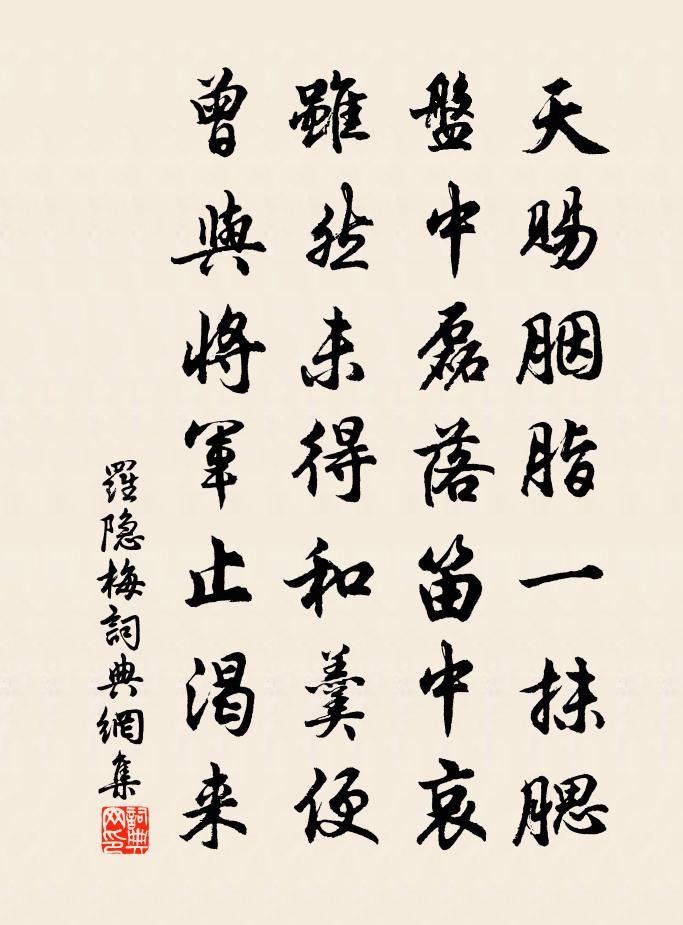 天賜胭脂一抹腮
盤中磊落笛中哀
雖然未得和羹便
曾與將軍止渴来
羅隐梅詞典網集
詞典网印